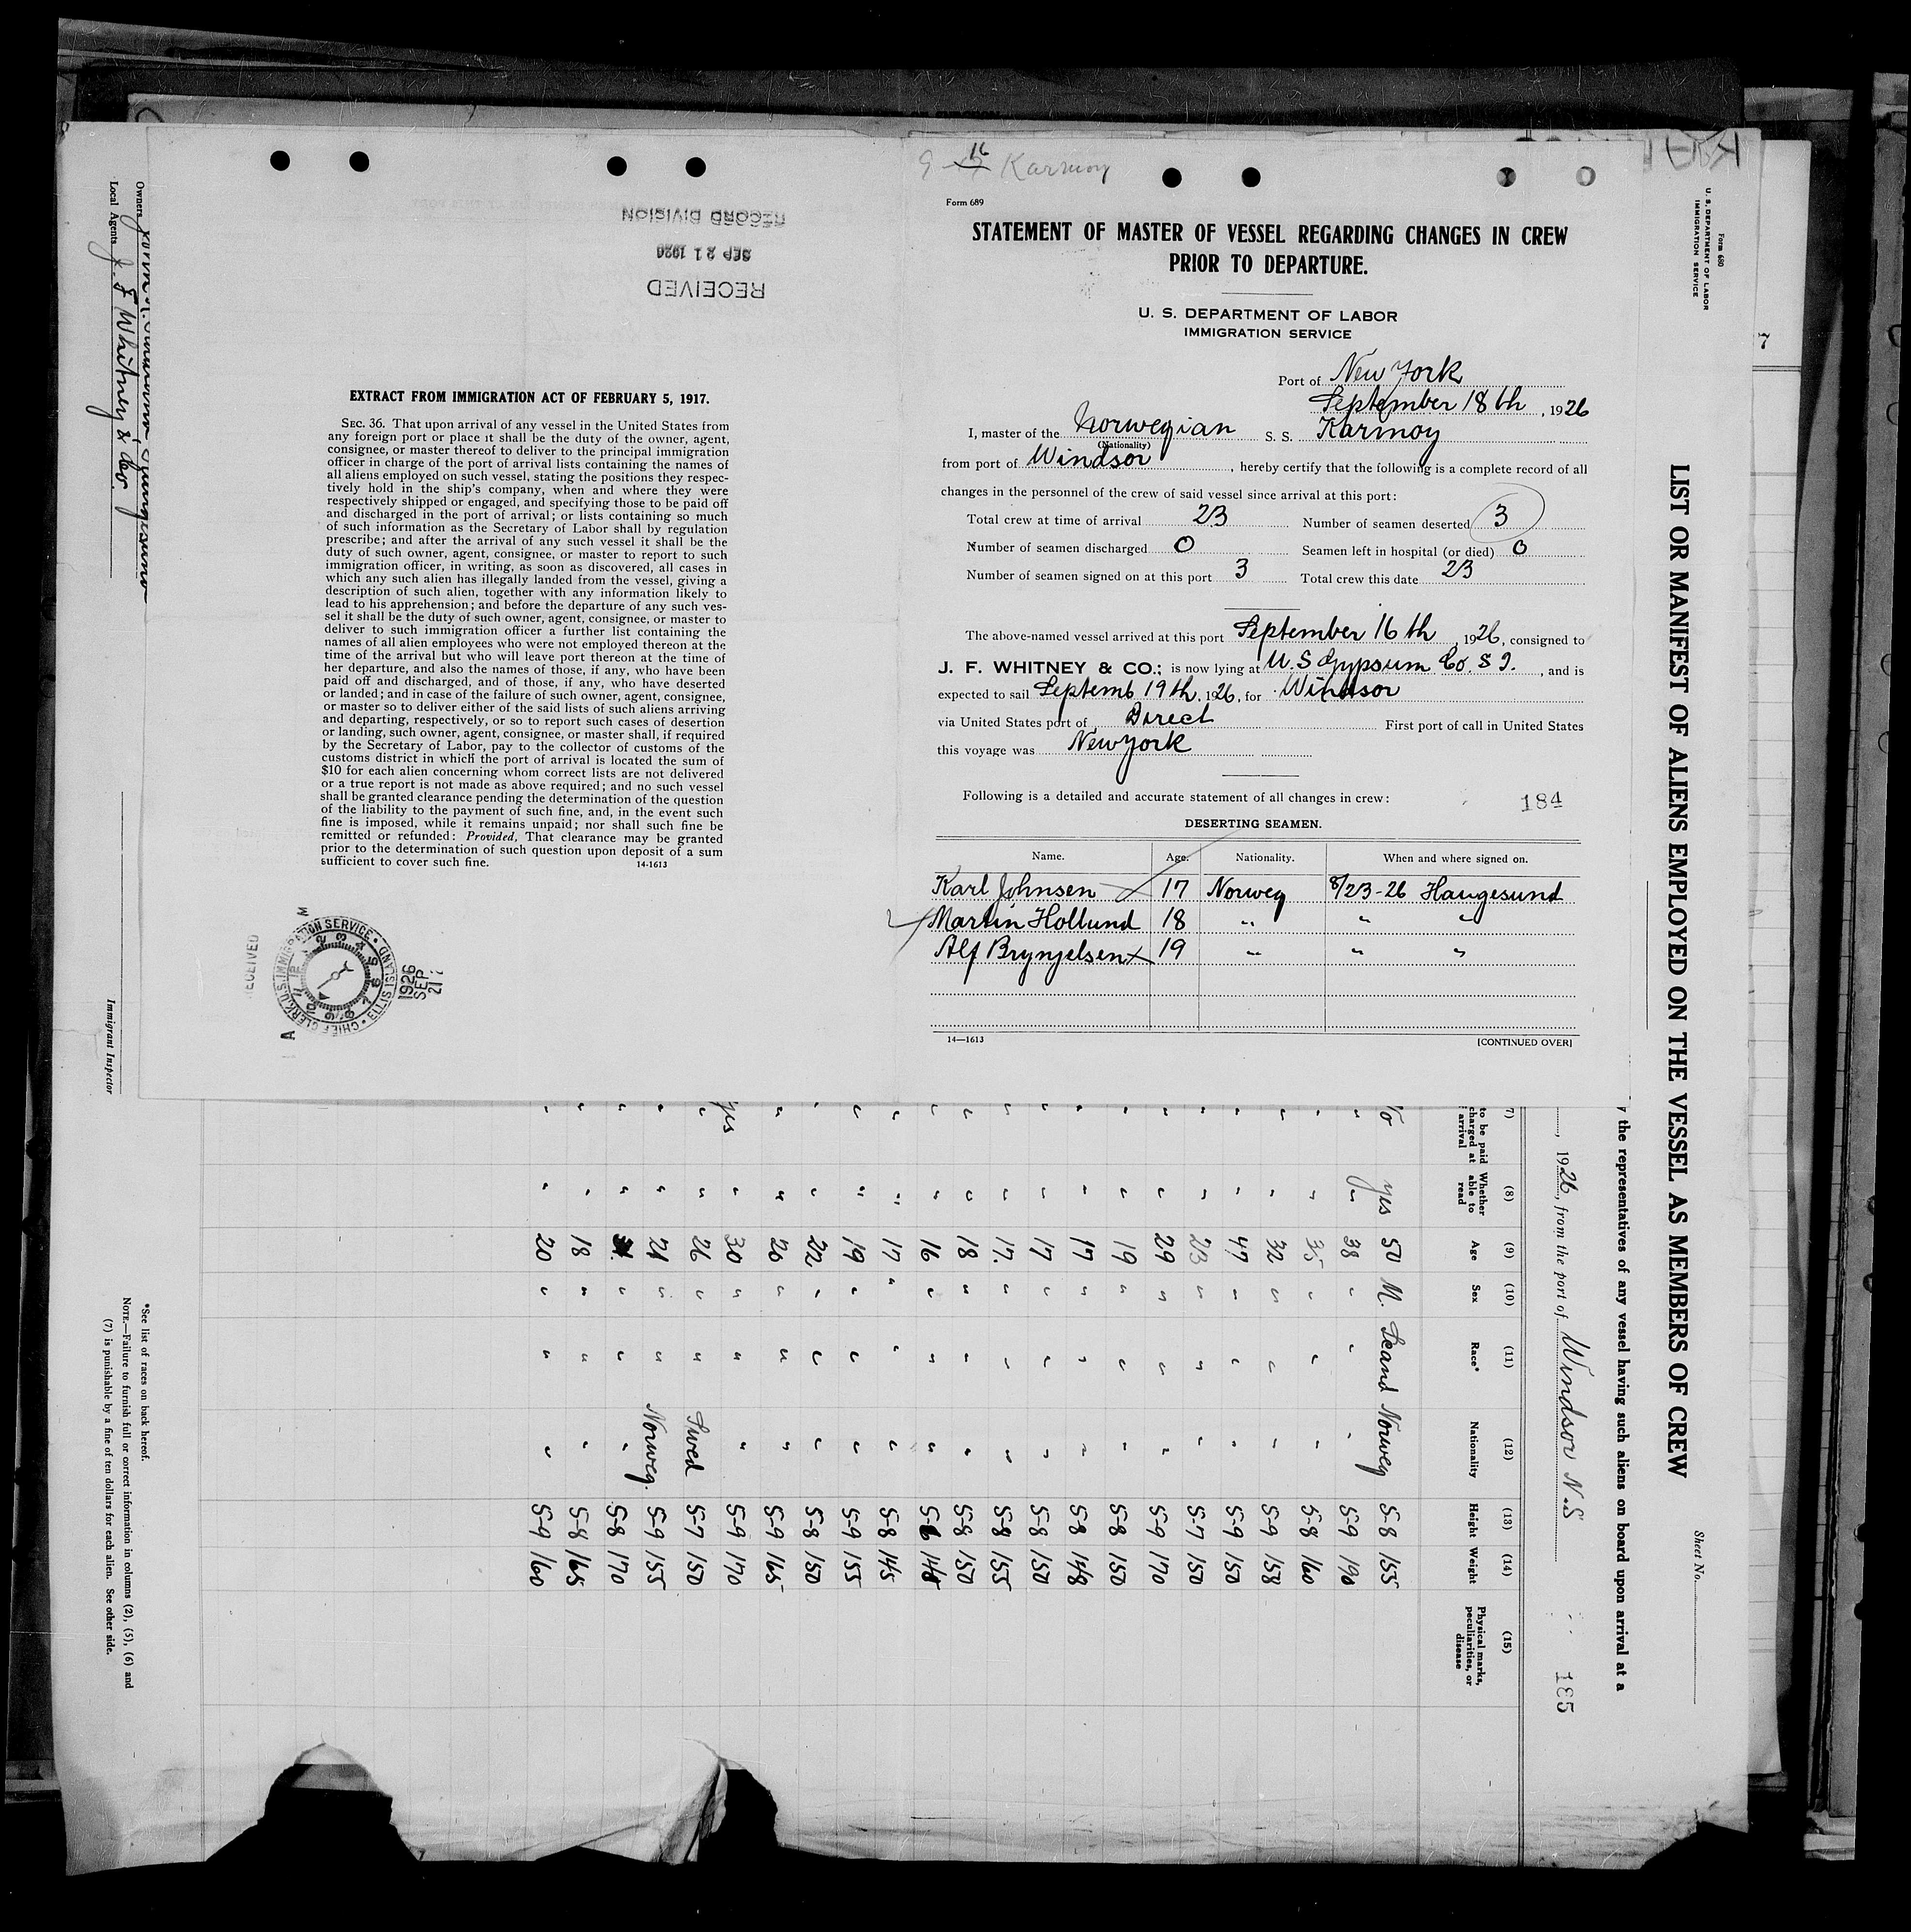 9-16 Karmoy
Form 689
STATEMENT OF MASTER OF VESSEL REGARDING CHANGES IN CREW
PRIOR TO DEPARTURE.
U. S. DEPARTMENT OF LABOR
IMMIGRATION SERVICE
Port of New York
September 18th, 1926
I, master of the Norwegian S. S. Karmoy
(Nationality)
from port of Windsor, hereby certify that the following is a complete record of all
changes in the personnel of the crew of said vessel since arrival at this port:
Total crew at time of arrival 23 Number of seamen deserted 3
Number of seamen discharged 0 Seamen left in hospital (or died) 0
Number of seamen signed on at this port 3 Total crew this date 23
The above-named vessel arrived at this port September 16th, 1926, consigned to
J. F. WHITNEY & CO.; is now lying at U.S Gypsum Co. S I., and is
expected to sail Septemb 19th, 1926, for Windsor
via United States port of Direct First port of call in United States
this voyage was New York
Following is a detailed and accurate statement of all changes in crew:
184
DESERTING SEAMEN.
Name. Age. Nationality. When and where signed on.
Karl Johnsen 17 Norweg 8/23-26 Haugesund
Martin Hollund 18 " " "
Alf Brynjelsen 19 " " "
14—1613 [CONTINUED OVER]
RECEIVED
SEP 21 1926
RECORD DIVISION
EXTRACT FROM IMMIGRATION ACT OF FEBRUARY 5, 1917.
SEC. 36. That upon arrival of any vessel in the United States from
any foreign port or place it shall be the duty of the owner, agent,
consignee, or master thereof to deliver to the principal immigration
officer in charge of the port of arrival lists containing the names of
all aliens employed on such vessel, stating the positions they respec-
tively hold in the ship's company, when and where they were
respectively shipped or engaged, and specifying those to be paid off
and discharged in the port of arrival; or lists containing so much
of such information as the Secretary of Labor shall by regulation
prescribe; and after the arrival of any such vessel it shall be the
duty of such owner, agent, consignee, or master to report to such
immigration officer, in writing, as soon as discovered, all cases in
which any such alien has illegally landed from the vessel, giving a
description of such alien, together with any information likely to
lead to his apprehension; and before the departure of any such ves-
sel it shall be the duty of such owner, agent, consignee, or master to
deliver to such immigration officer a further list containing the
names of all alien employees who were not employed thereon at the
time of the arrival but who will leave port thereon at the time of
her departure, and also the names of those, if any, who have been
paid off and discharged, and of those, if any, who have deserted
or landed; and in case of the failure of such owner, agent, consignee,
or master so to deliver either of the said lists of such aliens arriving
and departing, respectively, or so to report such cases of desertion
or landing, such owner, agent, consignee, or master shall, if required
by the Secretary of Labor, pay to the collector of customs of the
customs district in which the port of arrival is located the sum of
$10 for each alien concerning whom correct lists are not delivered
or a true report is not made as above required; and no such vessel
shall be granted clearance pending the determination of the question
of the liability to the payment of such fine, and, in the event such
fine is imposed, while it remains unpaid; nor shall such fine be
remitted or refunded: Provided, That clearance may be granted
prior to the determination of such question upon deposit of a sum
sufficient to cover such fine. 14-1613
RECEIVED
CHIEF CLERK U.S. IMMIGRATION SERVICE (ELLIS ISLAND)
1926
SEP
21
Form 680
U. S. DEPARTMENT OF LABOR
IMMIGRATION SERVICE
Sheet No.
LIST OR MANIFEST OF ALIENS EMPLOYED ON THE VESSEL AS MEMBERS OF CREW
the representatives of any vessel having such aliens on board upon arrival at a
, 1926, from the port of Windsor N.S
185
(7) (8) (9) (10) (11) (12) (13) (14) (15)
to be paid charged at arrival Whether able to read Age Sex Race* Nationality Height Weight Physical marks, peculiarities, or disease
yes 50 M. Scand Norweg 5-8 155
" 38 " " " 5-9 190
" 35 " " " 5-8 160
" 32 " " " 5-9 158
" 47 " " " 5-9 150
" 23 " " " 5-7 150
" 29 " " " 5-9 170
" 19 " " " 5-8 150
" 17 " " " 5-8 148
" 17 " " " 5-8 150
" 17. " " " 5-8 155
" 18 " " " 5-8 150
" 16 " " " 5-6 148
" 17 " " " 5-8 145
" 19 " " " 5-9 155
" 22 " " " 5-8 150
" 20 " " " 5-9 165
yes " 30 " " " 5-9 170
" 26 " " Swed 5-7 150
" 21 " " Norweg. 5-9 155
" " " " 5-8 170
" 18 " " " 5-8 165
" 20 " " " 5-9 160
*See list of races on back hereof.
NOTE.—Failure to furnish full or correct information in columns (2), (5), (6) and
(7) is punishable by a fine of ten dollars for each alien. See other side.
Owners
Local Agents J. F Whitney & Co
Immigrant Inspector